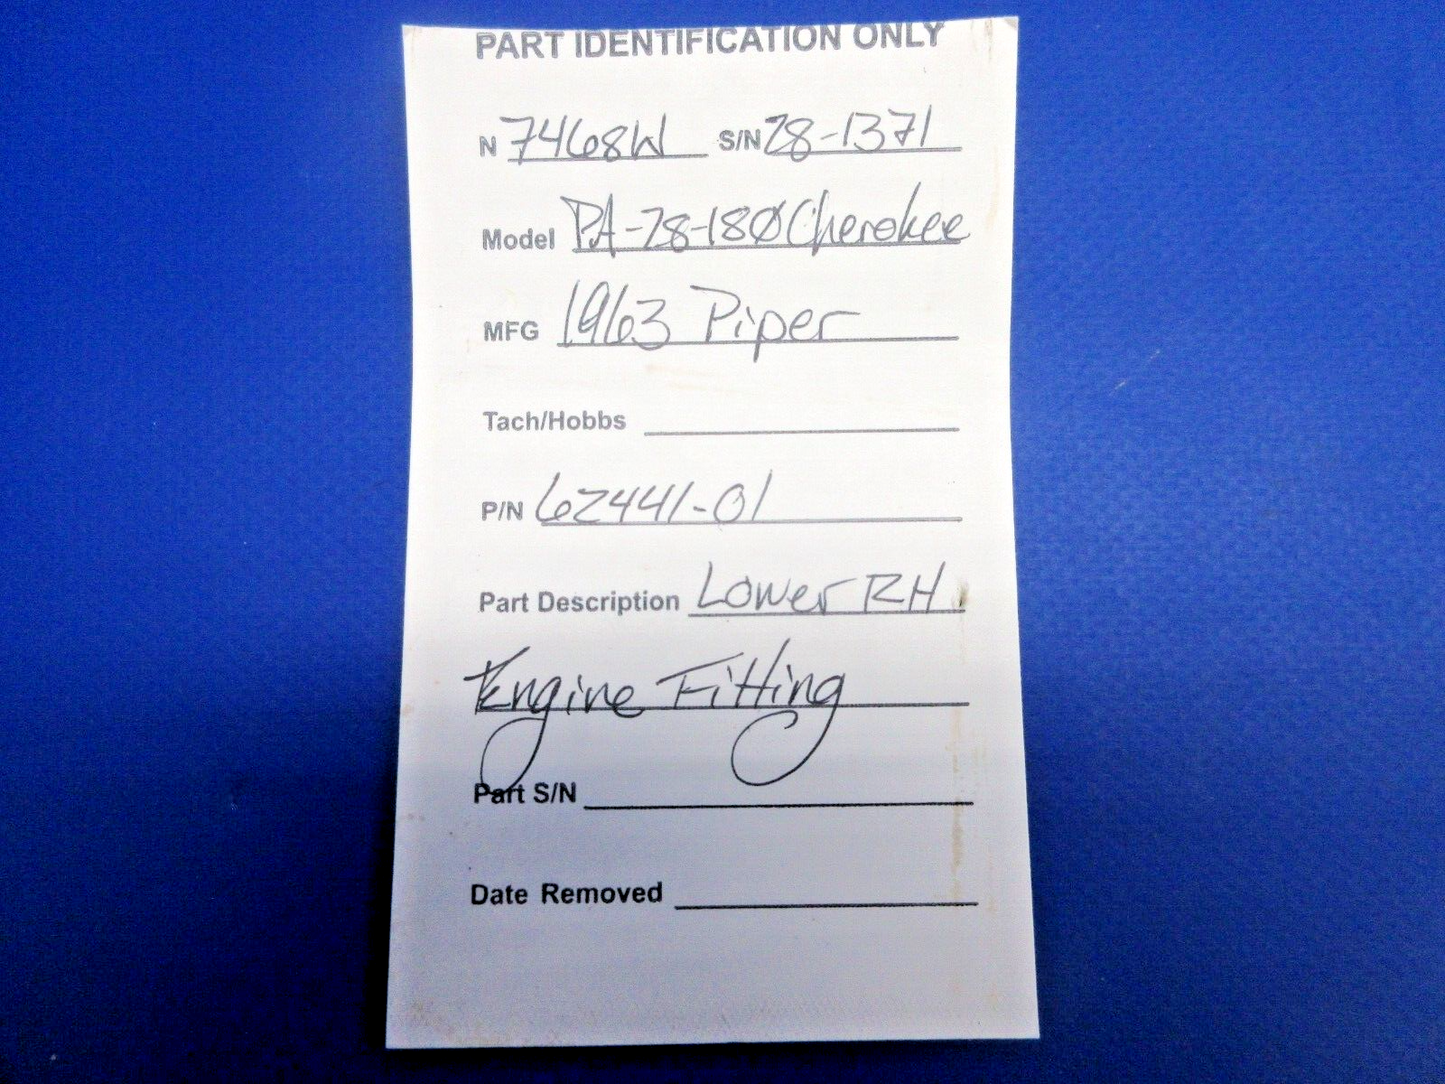 PART IDENTIFICATION ONLY
N 7468W S/N 28-1371
Model PA-28-180 Cherokee
MFG 1963 Piper
Tach/Hobbs
P/N 62441-01
Part Description Lower RH
Engine Fitting
Part S/N
Date Removed